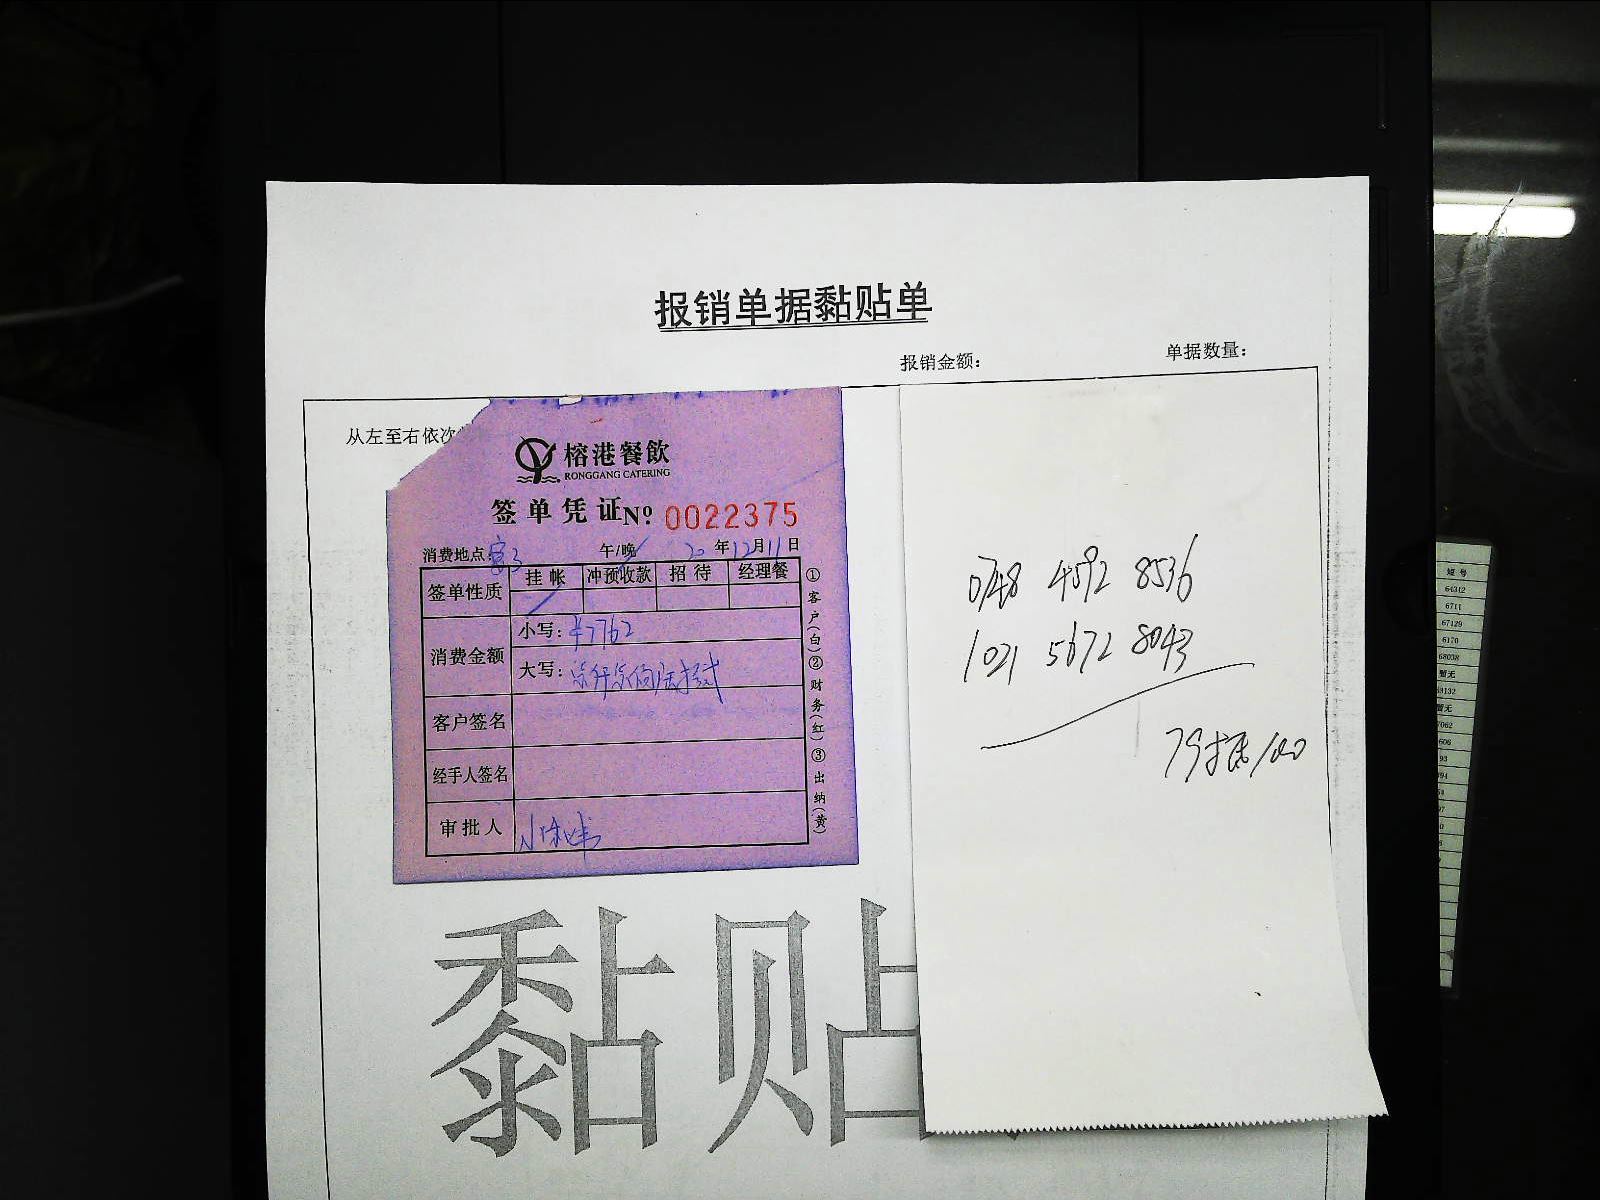 报销单据黏贴单
报销金额: 单据数量:
从左至右依次
榕港餐飲
RONGGANG CATERING
签单凭证 Nº 0022375
消费地点: 午/晚 20年12月11日
签单性质 挂帐 冲预收款 招待 经理餐
消费金额 小写: ¥7762
大写:
客户签名
经手人签名
审批人
①客户(白)②财务(红)③出纳(黄)
0748 4592 8536
1021 5672 8043
黏贴
短号
64312
6711
67129
6170
68038
暂无
暂无